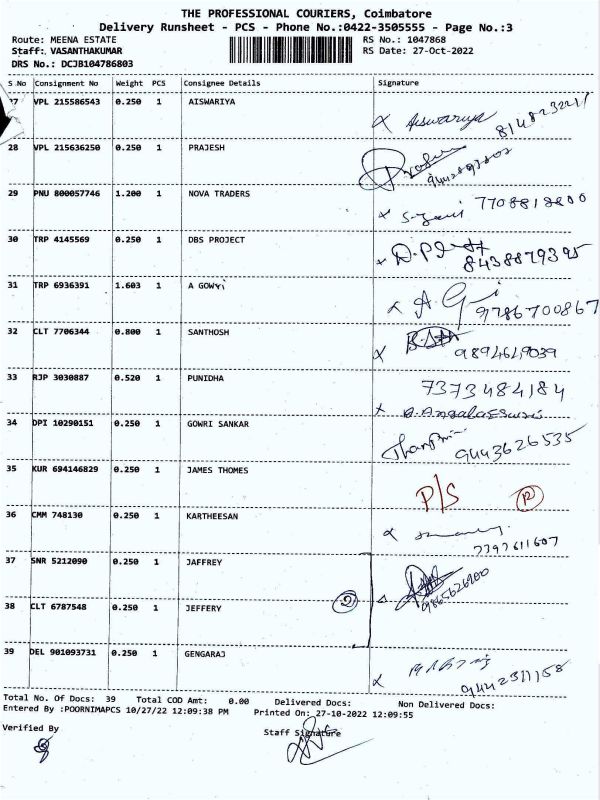 THE PROFESSIONAL COURIERS, Coimbatore
Delivery Runsheet - PCS - Phone No.:0422-3505555 - Page No.:3
Route: MEENA ESTATE RS No.: 1047868
Staff: VASANTHAKUMAR RS Date: 27-Oct-2022
DRS No.: DCJB104786803
S No Consignment No Weight PCS Consignee Details Signature
27 VPL 215586543 0.250 1 AISWARIYA
Aiswariya
28 VPL 215636250 0.250 1 PRAJESH
29 PNU 800057746 1.200 1 NOVA TRADERS
7708812800
30 TRP 4145569 0.250 1 DBS PROJECT
8438879395
31 TRP 6936391 1.603 1 A GOWRI
9786700867
32 CLT 7706344 0.800 1 SANTHOSH
9894649039
33 RJP 3030887 0.520 1 PUNIDHA
7373484184
34 DPI 10290151 0.250 1 GOWRI SANKAR
9443626535
35 KUR 694146829 0.250 1 JAMES THOMES
P/S
36 CMM 748130 0.250 1 KARTHEESAN
37 SNR 5212090 0.250 1 JAFFREY
9865626900
38 CLT 6787548 0.250 1 JEFFERY
2
39 DEL 901093731 0.250 1 GENGARAJ
9442311158
Total No. Of Docs: 39 Total COD Amt: 0.00 Delivered Docs: Non Delivered Docs:
Entered By :POORNIMAPCS 10/27/22 12:09:38 PM Printed On: 27-10-2022 12:09:55
Verified By Staff Signature